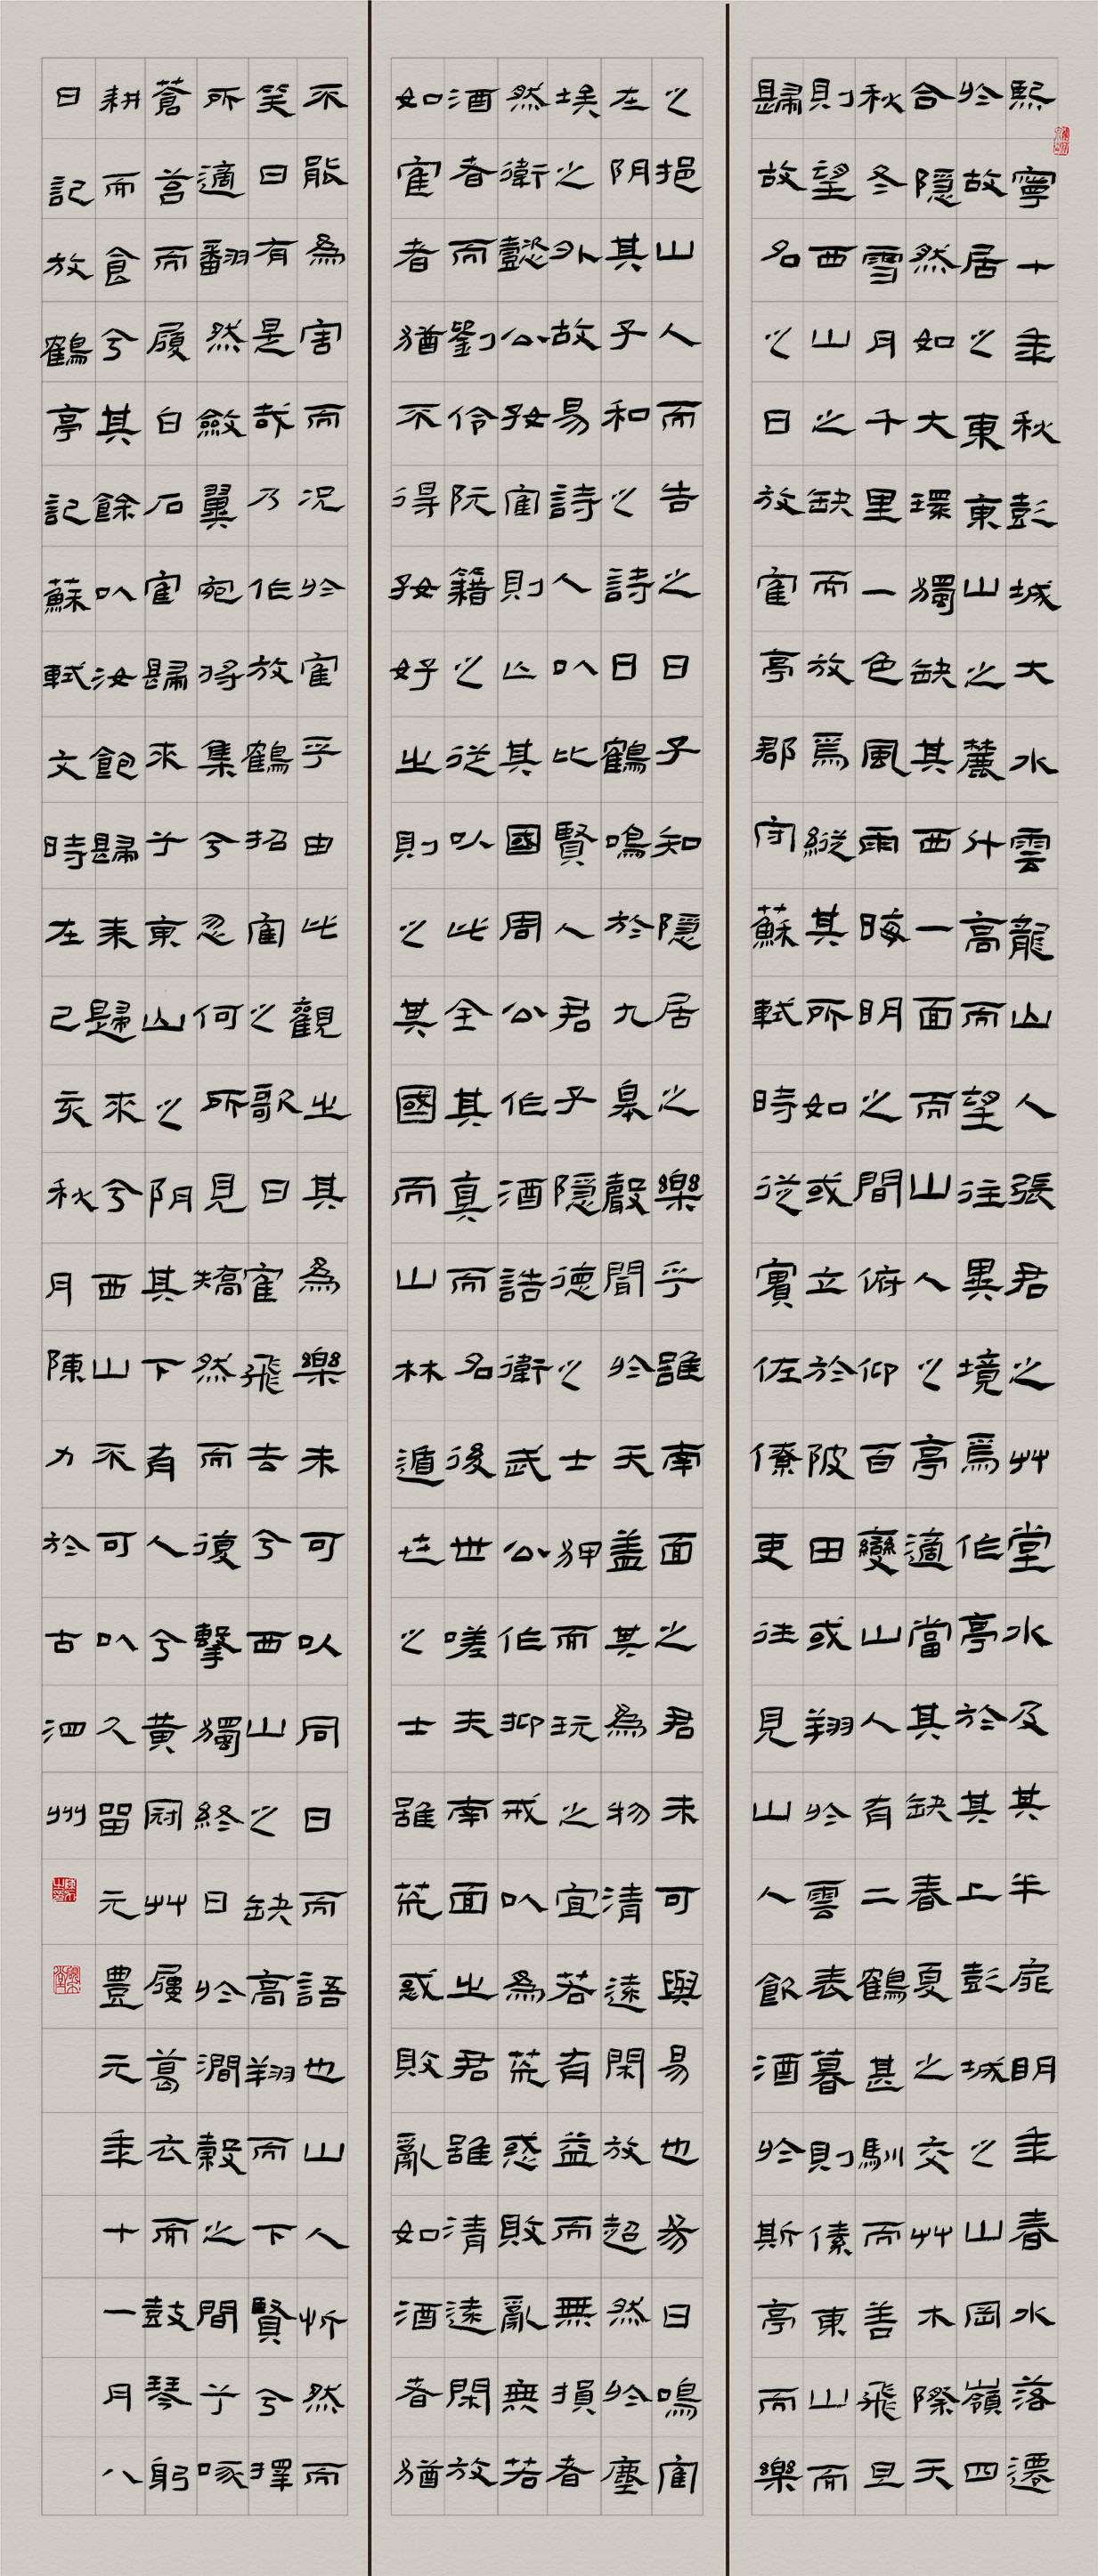 熙寧十年秋彭城大水雲龍山人張君之艸堂水及其半扉明年春水落遷
於故居之東東山之麓升高而望往異境焉作亭於其上彭城之山岡嶺四
合隱然如大環獨缺其西一面而山人之亭適當其缺春夏之交艸木際天
秋冬雪月千里一色風雨晦明之間俯仰百變山人有二鶴甚馴而善飛旦
則望西山之缺而放焉縱其所如或立於陂田或翔於雲表暮則傃東山而
歸故名之曰放鶴亭郡守蘇軾時從賓佐僚吏往見山人飲酒於斯亭而樂
之挹山人而告之曰子知隱居之樂乎雖南面之君未可與易也易曰鳴鶴
在陰其子和之詩曰鶴鳴於九皋聲聞於天蓋其為物清遠閑放超然於塵
埃之外故易詩人以比賢人君子隱德之士狎而玩之宜若有益而無損者
然衛懿公好鶴則亡其國周公作酒誥衛武公作抑戒以為荒惑敗亂無若
酒者而劉伶阮籍之徒以此全其真而名後世嗟夫南面之君雖清遠閑放
如鶴者猶不得好好之則亡其國而山林遁世之士雖荒惑敗亂如酒者猶
不能為害而況於鶴乎由此觀之其為樂未可以同日而語也山人忻然而
笑曰有是哉乃作放鶴招鶴之歌曰鶴飛去兮西山之缺高翔而下賢兮擇
所適翻然斂翼宛將集兮忽何所見矯然而復擊獨終日於澗穀之間兮啄
蒼苔而履白石鶴歸來兮東山之陰其下有人兮黃冠艸屨葛衣而鼓琴躬
耕而食兮其餘以汝飽歸來歸來兮西山不可以久留元豐元年十一月八
日記放鶴亭記蘇軾文時在己亥秋月陳力於古泗州